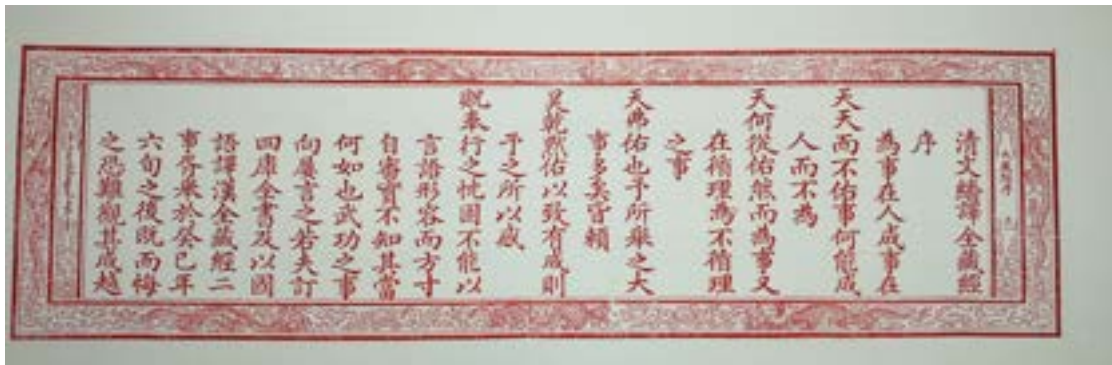 清文繙譯全藏經
序
為事在人成事在
天天而不佑事何能成
人而不為
天何從佑然而為事又
在循理為不循理
之事
天弗佑也予所舉之大
事多矣皆賴
昊乾默佑以致有成則
予之所以感
貺奉行之忱固不能以
言語形容而方寸
自審實不知其當
何如也武功之事
向屢言之若夫訂
四庫全書及以國
語譯漢全藏經二
事胥舉於癸巳年
六旬之後既而悔
之恐難觀其成越